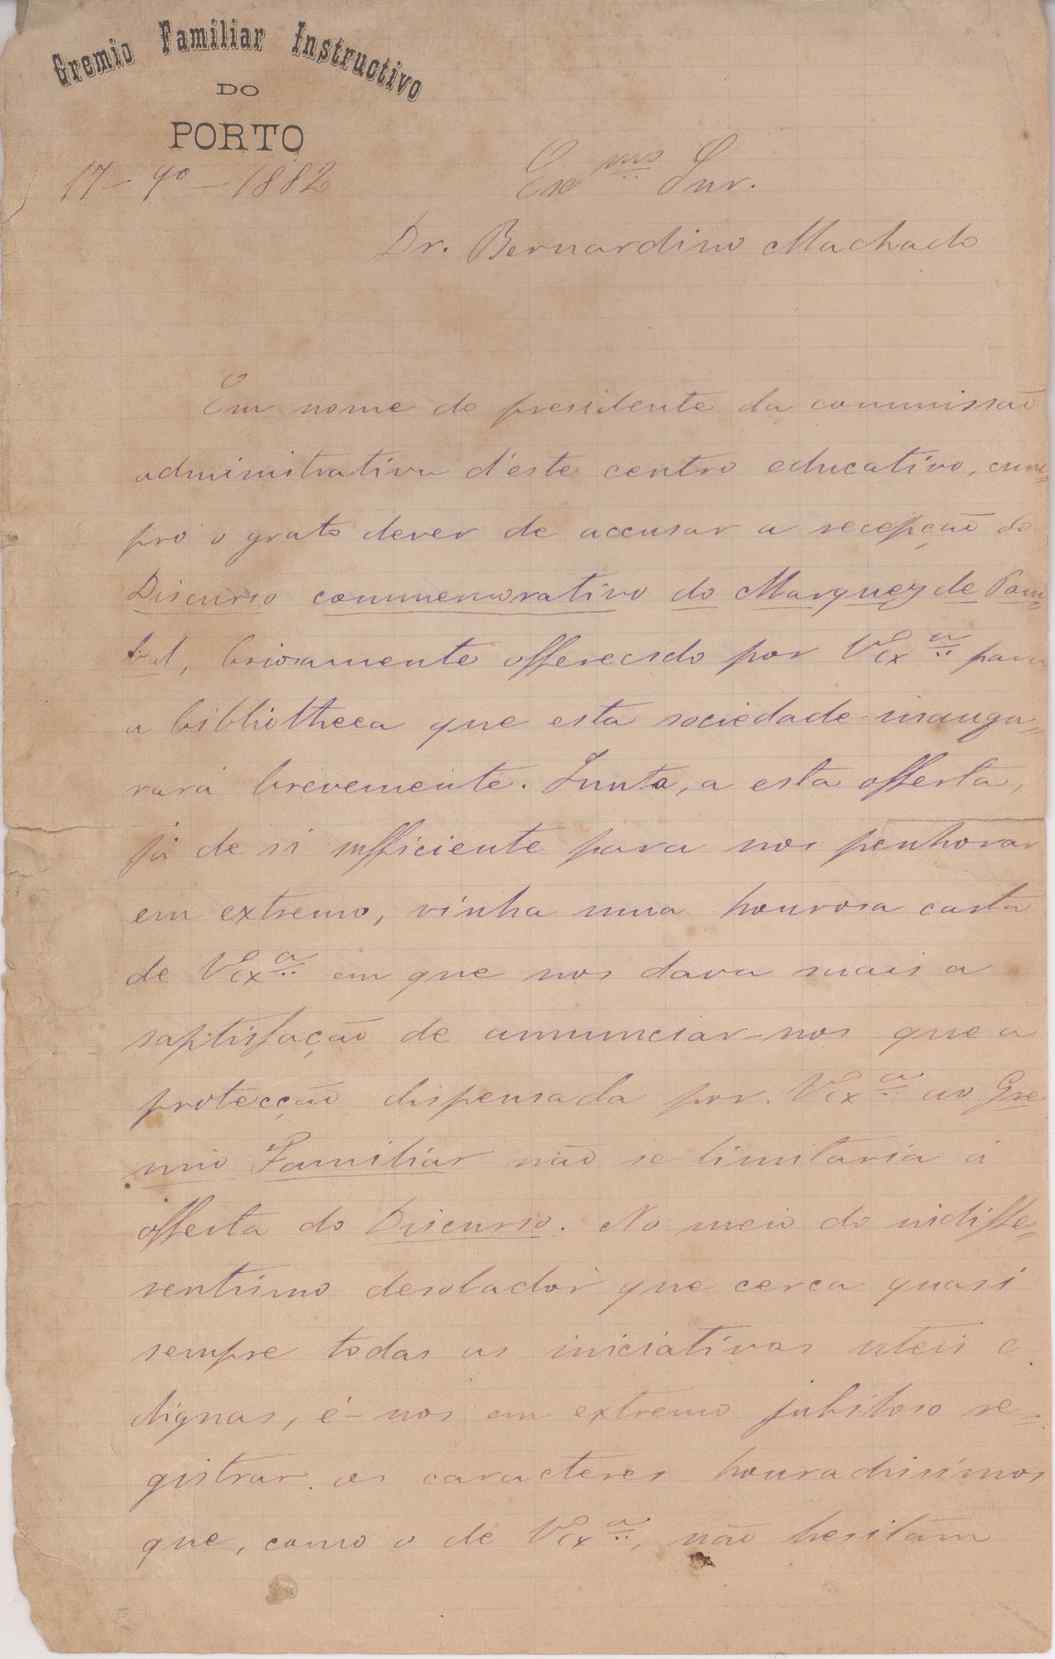 Gremio Familiar Instructivo
DO
PORTO
17 - 9º - 1882
Exmo Snr.
Dr. Bernardino Machado
Em nome do presidente da commissão
administrativa d'este centro educativo, cum-
pro o grato dever de accusar a recepção do
Discurso commemorativo do Marquez de Pom-
bal, briosamente offerecido por V Exa para
a bibliotheca que esta sociedade inaugu-
rará brevemente. Junto, a esta offerta,
já de si sufficiente para nos penhorar
em extremo, vinha uma honrosa carta
de V Exa em que nos dava mais a
saptisfação de annunciar-nos que a
protecção dispensada por V Exa ao Gre
mio Familiar não se limitaria á
offerta do Discurso. No meio do indiffe-
rentismo desolador que cerca quasi
sempre todas as iniciativas uteis e
dignas, é-nos em extremo jubiloso re-
gistrar os caracteres houradissimos
que, como o de V Exa, não hesitam